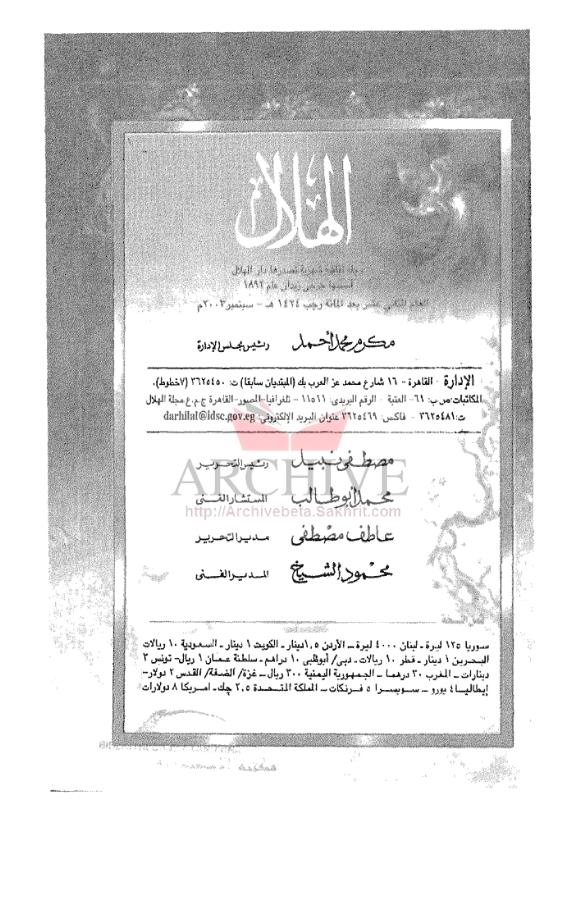 الهلال
مجلة ثقافية شهرية تصدرها دار الهلال
أسسها جرجى زيدان عام ١٨٩٢
العام الثانى عشر بعد المائة رجب ١٤٢٤ هـ - سبتمبر ٢٠٠٣م
مكرم محمد أحمد رئيس مجلس الإدارة
الإدارة - القاهرة - ١٦ شارع محمد عز العرب بك (المبتديان سابقا) ت: ٣٦٢٥٤٥٠ (٧خطوط).
المكاتبات: ص.ب: ٦١- العتبة - الرقم البريدى: ١١٥١١ - تلغرافيا - المصور - القاهرة ج.م.ع مجلة الهلال
ت: ٣٦٢٥٤٨١ - فاكس: ٣٦٢٥٤٦٩ عنوان البريد الإلكترونى: darhilal@idsc.gov.eg
مصطفى نبيل رئيس التحرير
ARCHIVE
محمد أبو طالب المستشار الفنى
http://Archivebeta.Sakhrit.com
عاطف مصطفى مدير التحرير
محمود الشيخ المدير الفنى
سوريا ١٢٥ ليرة - لبنان ٤٠٠٠ ليرة - الأردن ١,٥ دينار - الكويت ١ دينار - السعودية ١٠ ريالات
البحرين ١ دينار - قطر ١٠ ريالات - دبى/ أبوظبى ١٠ دراهم - سلطنة عمان ١ ريال - تونس ٣
دينارات - المغرب ٣٠ درهما - الجمهورية اليمنية ٣٠٠ ريال - غزة/ الضفة/ القدس ٢ دولار -
إيطاليا ٤ يورو - سويسرا ٥ فرنكات - المملكة المتحدة ٢,٥ جك - امريكا ٨ دولارات